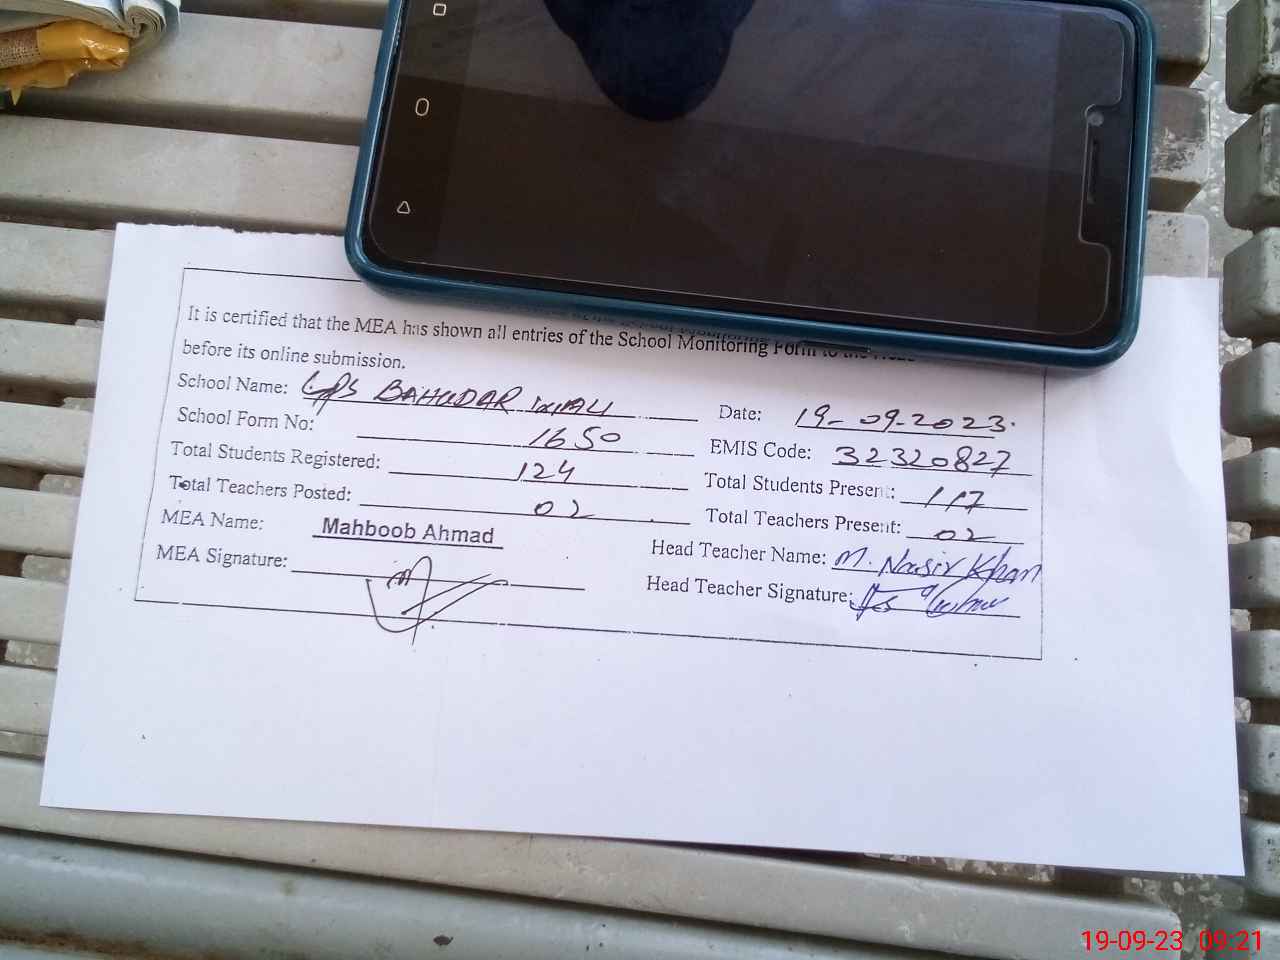 It is certified that the MEA has shown all entries of the School Monitoring Form to the Head
before its online submission.
School Name: GPS BAHUDAR WALI Date: 19-09-2023.
School Form No: 1650 EMIS Code: 32320827
Total Students Registered: 124 Total Students Present: 117
Total Teachers Posted: 02 Total Teachers Present: 02
MEA Name: Mahboob Ahmad Head Teacher Name: M. Nasir Khan
MEA Signature: Head Teacher Signature:
19-09-23 09:21